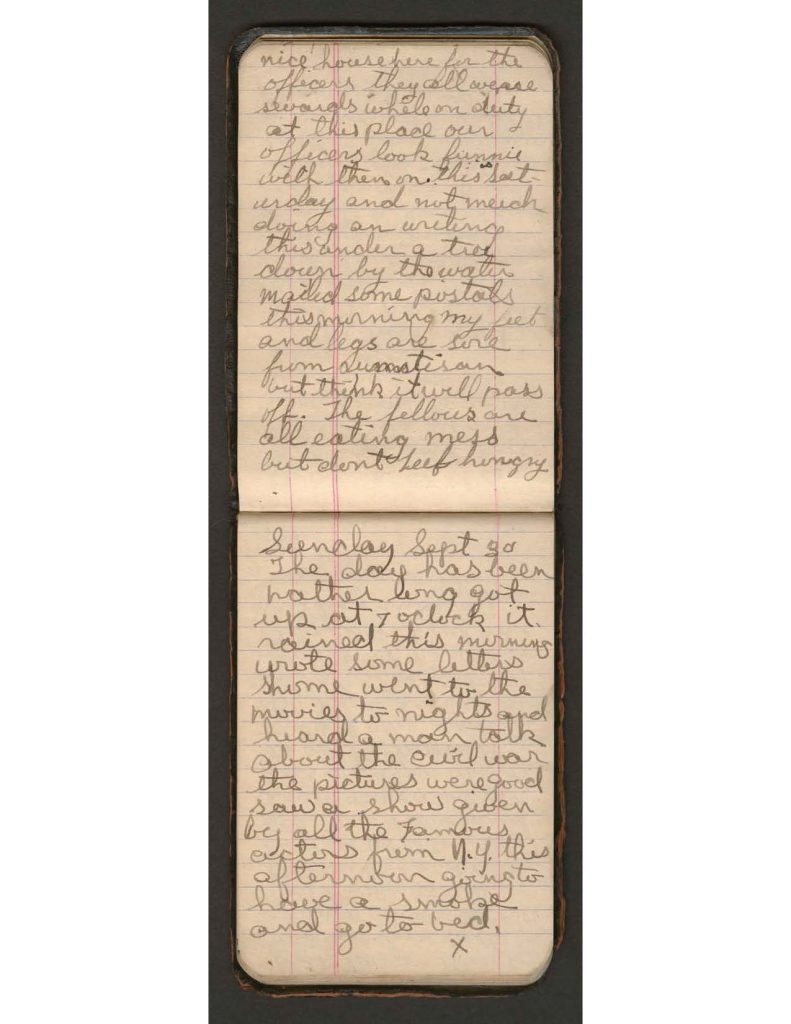 nice house here for the
officers they all weare
swards while on duty
at this place our
officers look funnie
with them on. this sat-
urday and not much
doing an writing
this under a tree
down by the water
mailed some postals
this morning my feet
and legs are sore
from
but think it will pass
off. The fellows are
all eating mess
but dont feel hongry
Sunday Sept 30
The day has been
rather long got
up at 7 oclock it
rained this morning
wrote some letters
home went to the
movies to nights and
heard a man talk
about the civil war
the pictures were good
saw a show given
by all the Famous
actors from N.Y. this
afternoon going to
have a smoke
and go to bed.
X